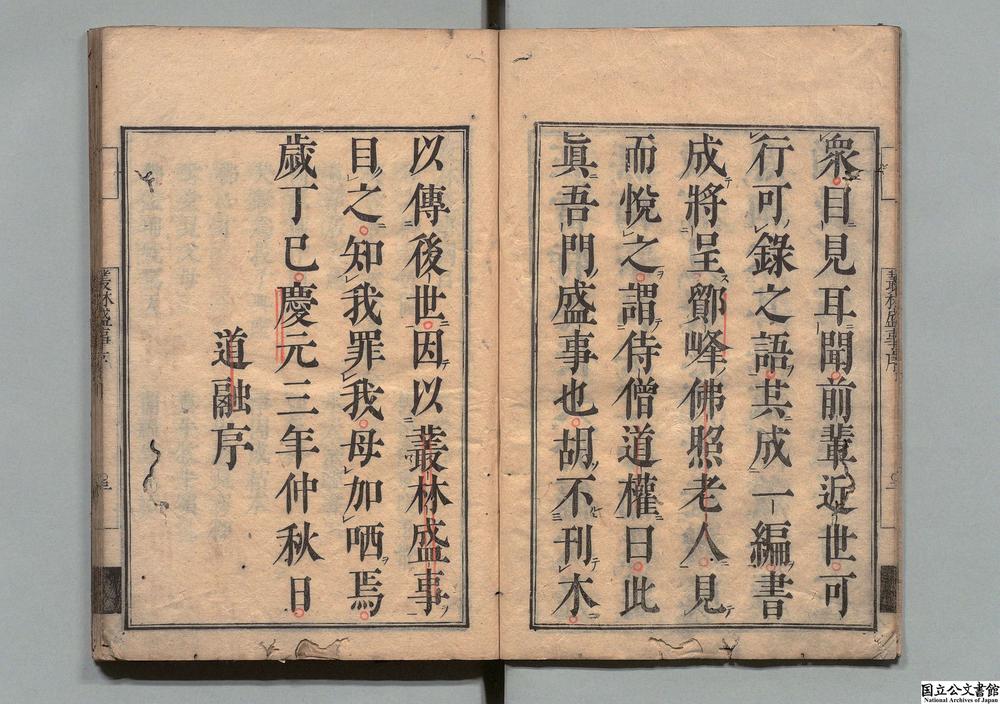 衆目見耳聞前輩近世可
行可錄之語共成一編書
成將呈鄮峰佛照老人見
而悅之謂侍僧道權曰此
眞吾門盛事也胡不刊木
以傳後世因以叢林盛事
目之知我罪我毋加哂焉
歲丁巳慶元三年仲秋日
道融序
叢林盛事序
国立公文書館
National Archives of Japan